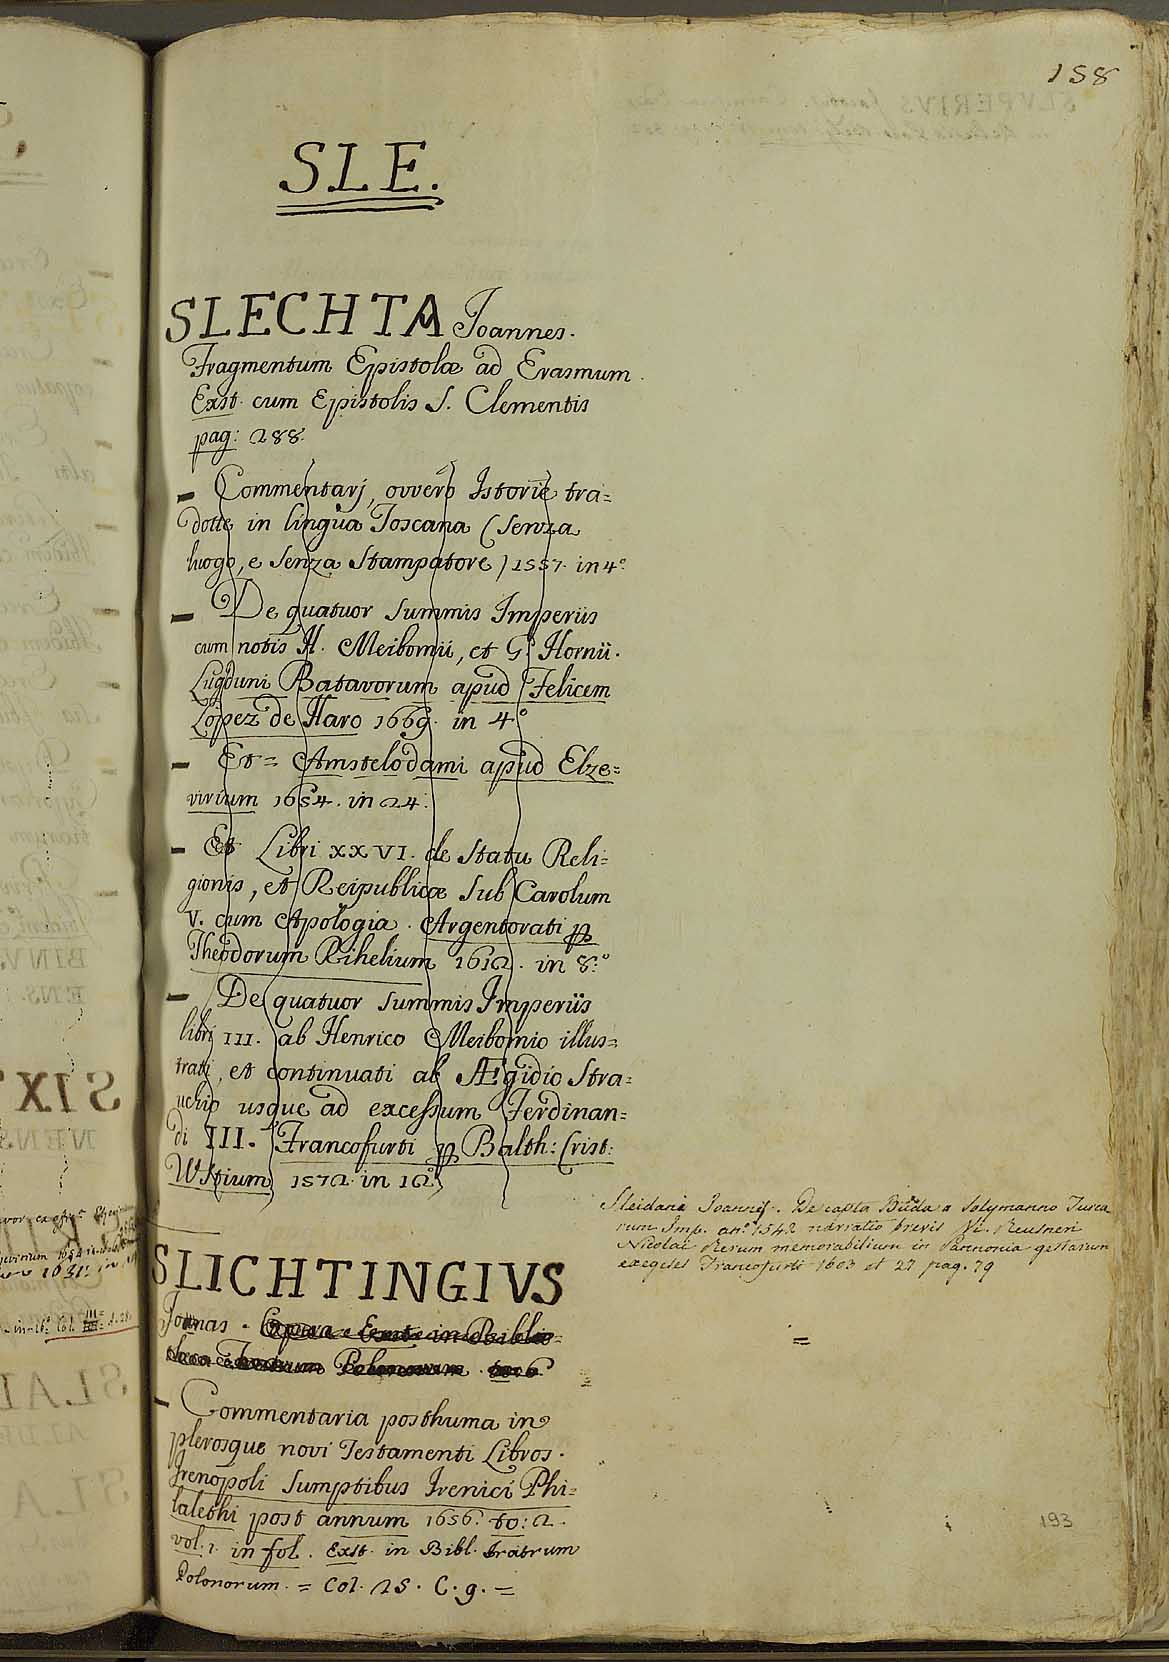 158
SLE.
SLECHTA Joannes.
Fragmentum Epistolæ ad Erasmum.
Exst. cum Epistolis S. Clementis
pag: 288.
– Commentarj, ovvero Istorie tra=
dotte in lingua Toscana (senza
luogo, e senza Stampatore) 1557. in 4°.
– De quatuor summis Imperiis
cum notis H. Meibomii, et G. Hornii.
Lugduni Batavorum apud Felicem
Lopez de Haro 1669. in 4°
– Et = Amstelodami apud Elze=
virium 1654. in 24.
– Et Libri XXVI. de Statu Reli=
gionis, et Reipublicæ sub Carolum
V. cum Apologia. Argentorati p
Theodorum Rihelium 1612. in 8.°
– De quatuor summis Imperiis
libri III. ab Henrico Meibomio illus=
trati, et continuati ab Ægidio Stra=
uchio usque ad excessum Ferdinan=
di III. Francofurti p Balth: Crist:
Wstium 1572. in 12°
Sleidani Joannis. De capta Buda a Solymanno Turca
rum Imp. an.° 1542 narratio brevis Vi. Reusneri
Nicolai Rerum memorabilium in Pannonia gestarum
exegeses Francofurti 1603 et 27 pag. 79
SLICHTINGIVS
Jonas. Opera Exst in Biblio=
teca Fratrum Polonorum
=
– Commentaria posthuma in
plerosque novi Testamenti Libros.
Irenopoli sumptibus Irenici Phi=
lalethi post annum 1656. to: 2.
vol. 1. in fol. Exst. in Bibl. Fratrum
Polonorum. = Col. 25. C. 9. =
193